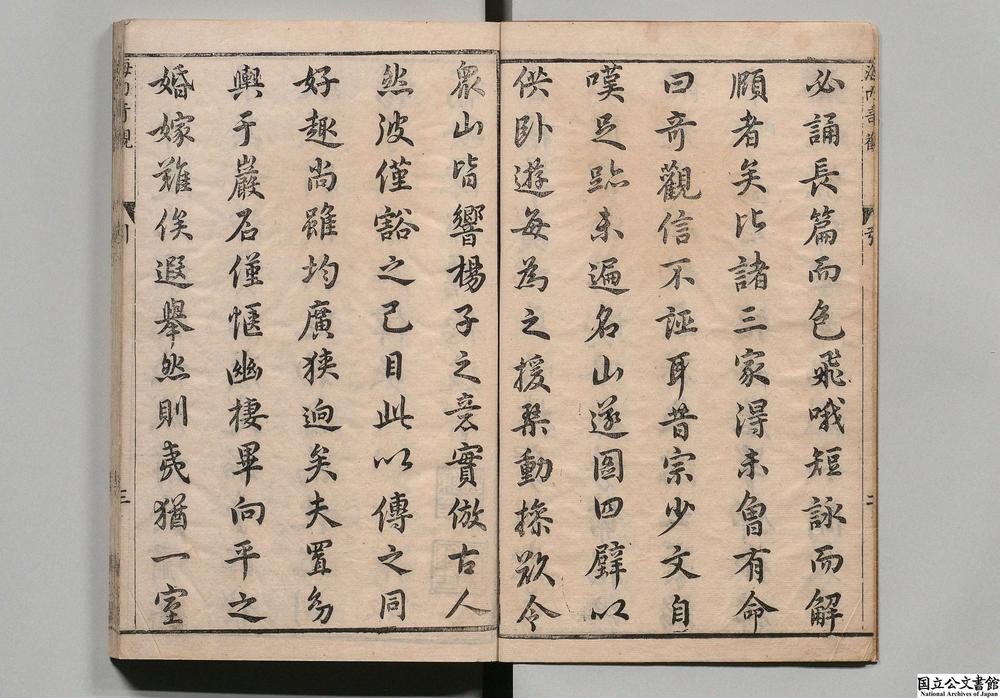 海内奇觀 引 二
必誦長篇而色飛哦短詠而解
頤者矣比諸三家得未曾有命
曰奇觀信不誣耳昔宗少文自
嘆足跡未遍名山遂圖四壁以
供卧遊每為之援琴動操欲令
衆山皆響楊子之意實倣古人
然波僅豁之己目此以傳之同
好趣尚雖均廣狹迥矣夫置身
輿于巖石僅愜幽棲畢向平之
婚嫁難俟遐舉然則夷猶一室
海内奇觀 引 三
国立公文書館
National Archives of Japan